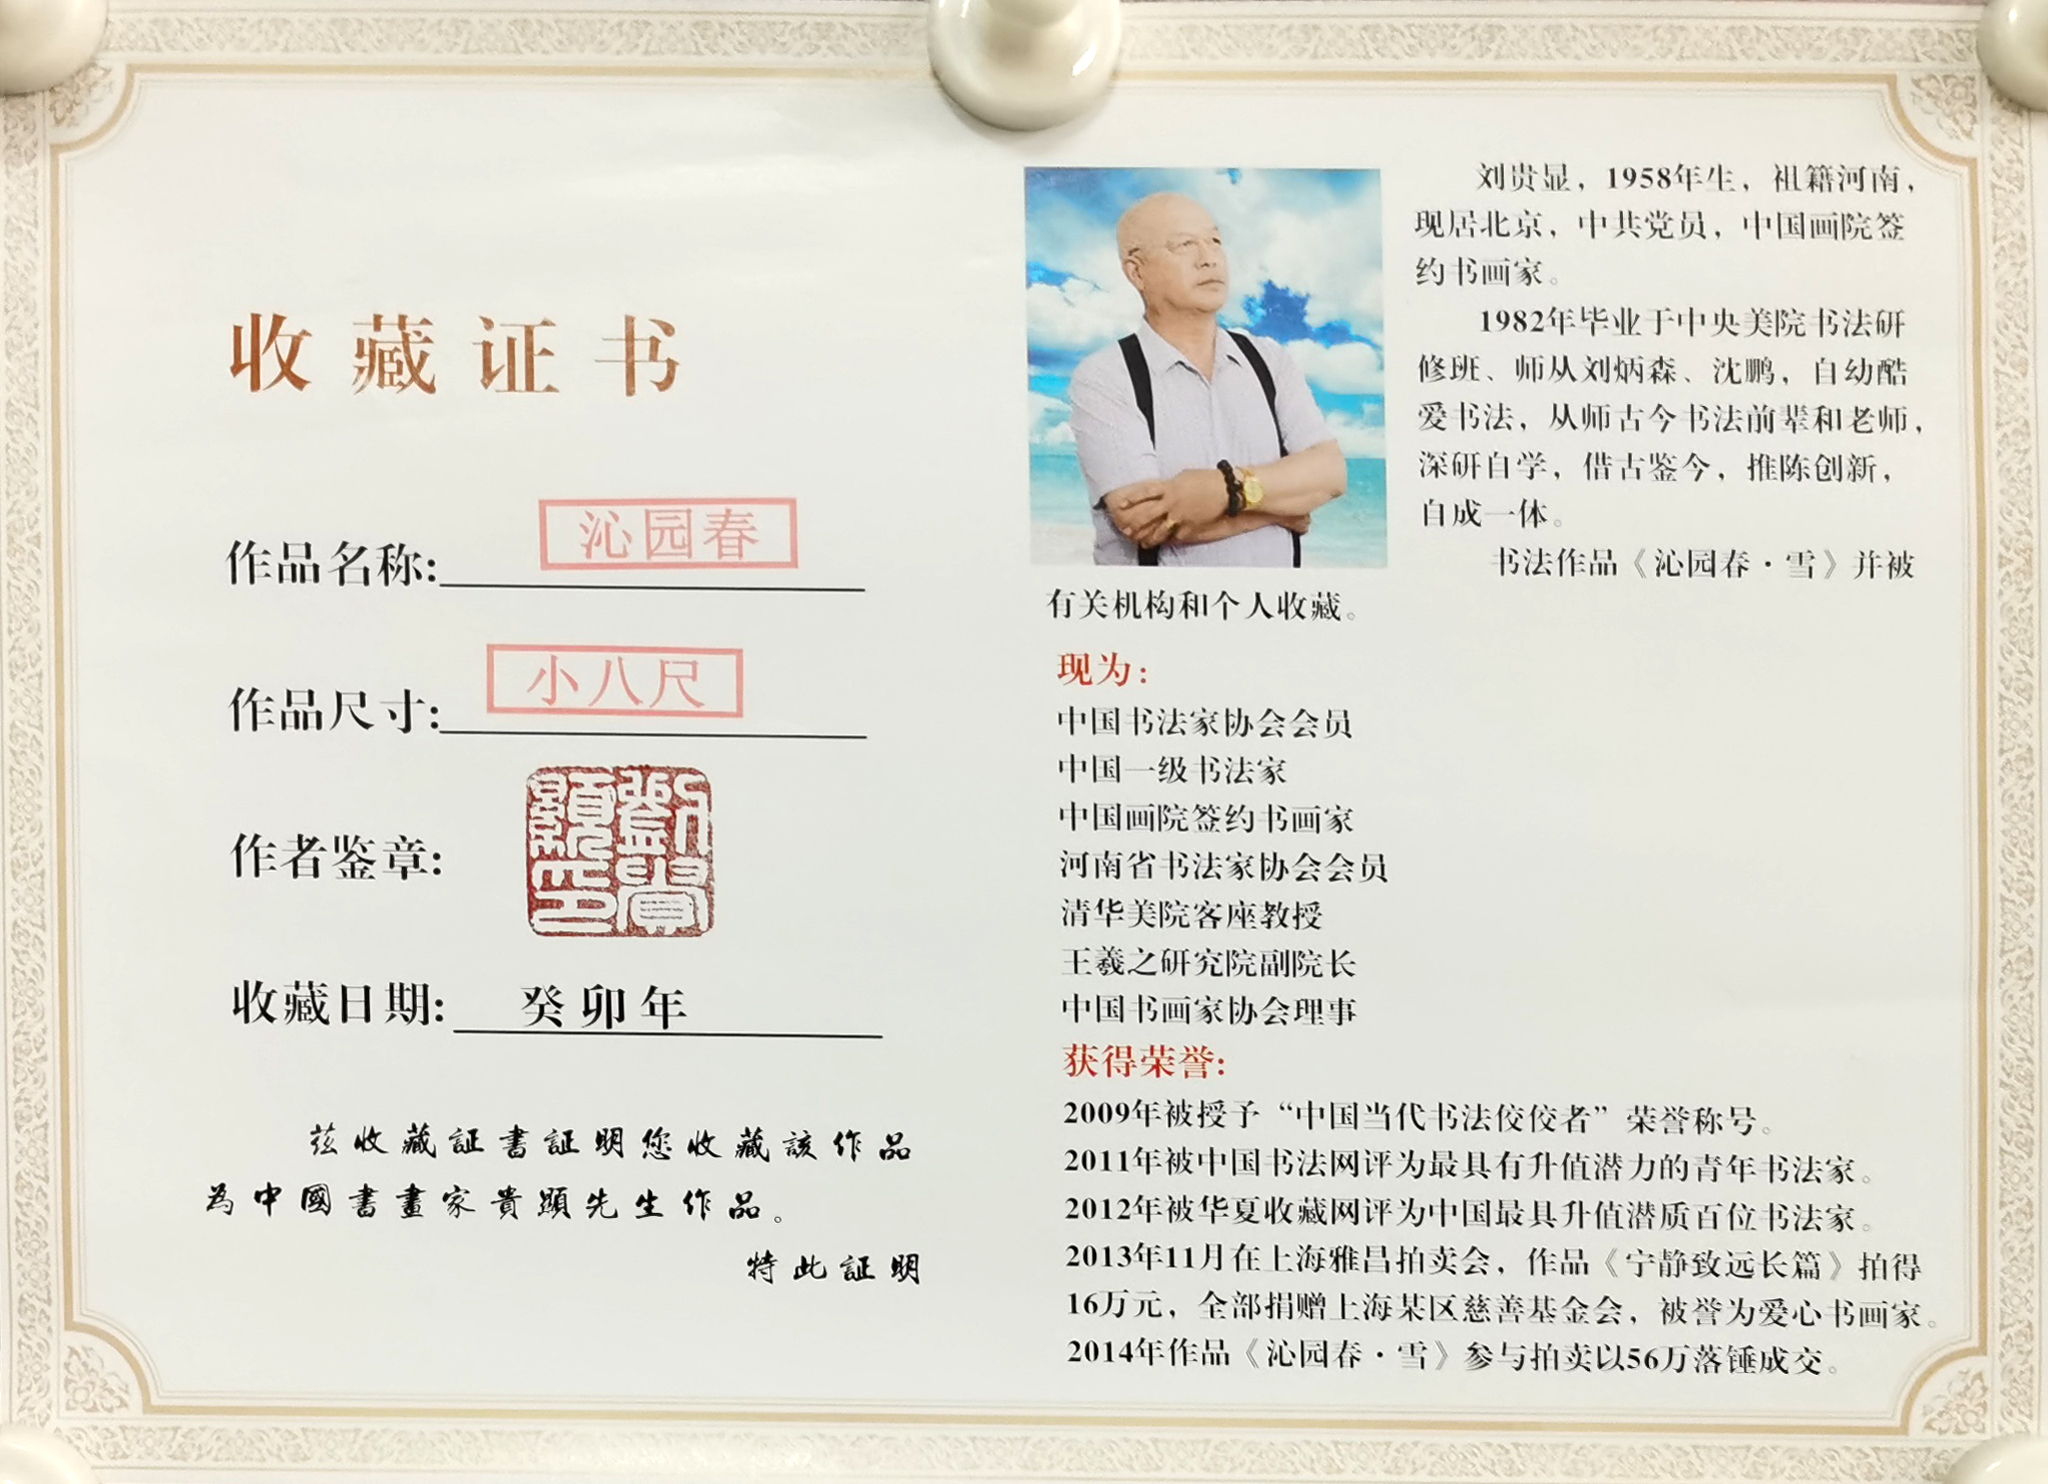 收藏证书
作品名称:
沁园春
作品尺寸:
小八尺
作者鉴章:
劉貴顯印
收藏日期:
癸卯年
茲收藏証書証明您收藏該作品
為中國書畫家貴顯先生作品。
特此証明
刘贵显，1958年生，祖籍河南，
现居北京，中共党员，中国画院签
约书画家。
1982年毕业于中央美院书法研
修班、师从刘炳森、沈鹏，自幼酷
爱书法，从师古今书法前辈和老师，
深研自学，借古鉴今，推陈创新，
自成一体。
书法作品《沁园春·雪》并被
有关机构和个人收藏。
现为:
中国书法家协会会员
中国一级书法家
中国画院签约书画家
河南省书法家协会会员
清华美院客座教授
王羲之研究院副院长
中国书画家协会理事
获得荣誉:
2009年被授予“中国当代书法佼佼者”荣誉称号。
2011年被中国书法网评为最具有升值潜力的青年书法家。
2012年被华夏收藏网评为中国最具升值潜质百位书法家。
2013年11月在上海雅昌拍卖会，作品《宁静致远长篇》拍得
16万元，全部捐赠上海某区慈善基金会，被誉为爱心书画家。
2014年作品《沁园春·雪》参与拍卖以56万落锤成交。